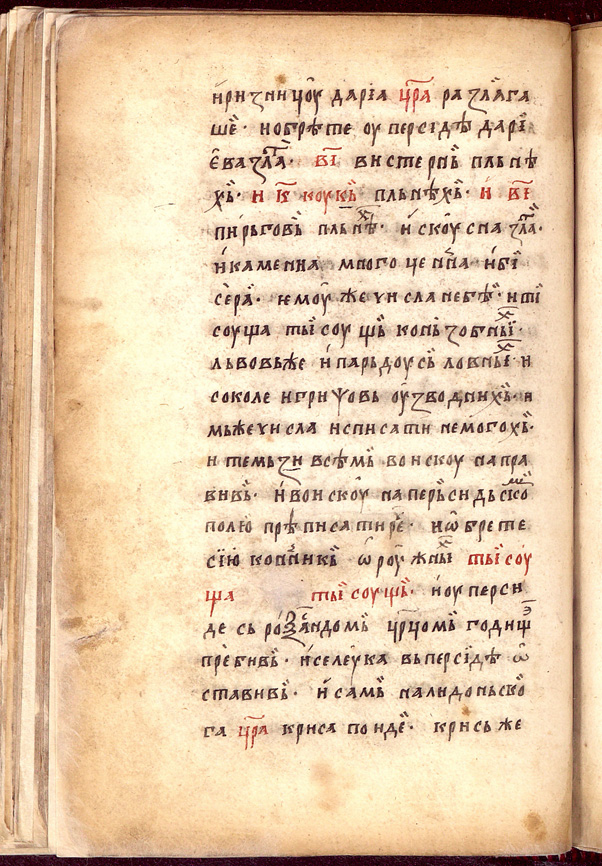 и ризницоу дарїа цр҃а разлага
ше· и обрѣте оу персідѣ дарї
ева злата· в҃і вистернь пльнѣ
хь· и к҃ коукь пльнѣхь· и в҃і
пиргговь пльнѣх· и скоусна злата·
и камениа много ценна· и бі
сера· емоу же числа не бѣ· и ти
соуща тысоущь конь зобныих·
львовь же и парьдоусь ловныих· и
соколе и грипсовь оузводнихь· и
мьже числа исписати не могохь·
и темьзи всѣмь воискоу напра
вивь· и воискоу на перьсидьском
полю прѣписати рече· и ѡбрете
сїю коппникь ѡроужныих тысоу
ща тысоущь· и оу перси
де сь роѯандомь црцомь годище
прѣбивь· и селеука вь персідѣ ѡ
ставивь· и самь на лидоньско
га цр҃а криса поиде· крись же